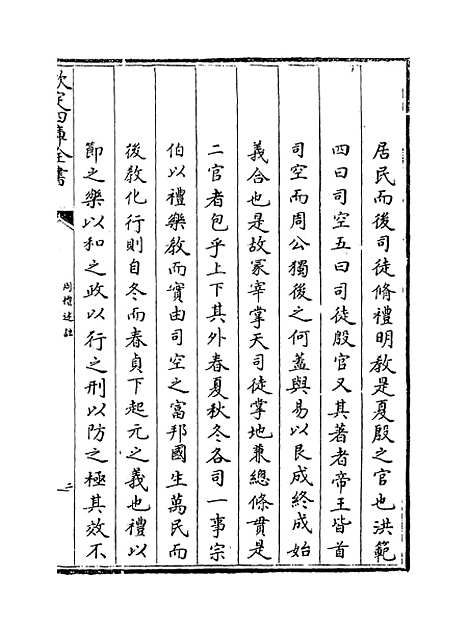 居民而後司徒脩禮明教是夏殷之官也洪範
四曰司空五曰司徒殷官又其著者帝王皆首
司空而周公獨後之何蓋與易以艮成終成始
義合也是故冢宰掌天司徒掌地兼總條貫是
二官者包乎上下其外春夏秋冬各司一事宗
伯以禮樂教而實由司空之富邦國生萬民而
後教化行則自冬而春貞下起元之義也禮以
節之樂以和之政以行之刑以防之極其效不
欽定四庫全書
周禮述註
二